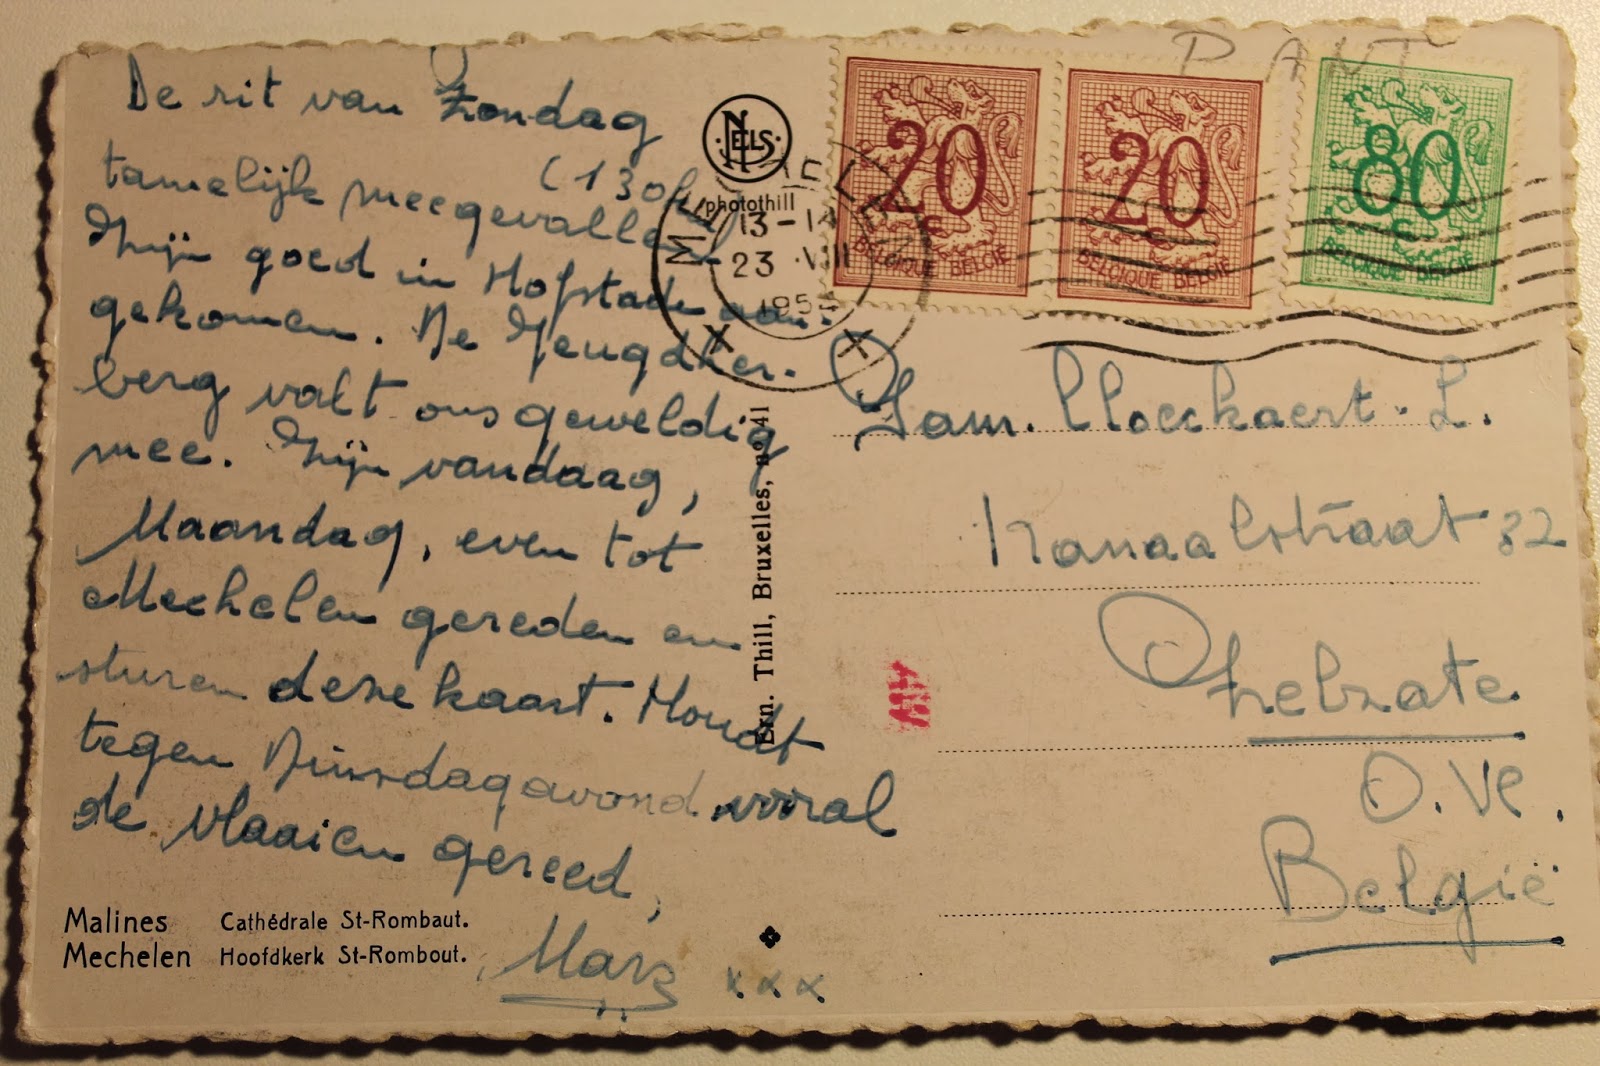 De rit van Zondag
(130k
tamelijk meegevallen
Zijn goed in Hofstade aan-
gekomen. De Jeugdher-
berg valt ons geweldig
mee. Zijn vandaag,
Maandag, even tot
Mechelen gereden en
sturen deze kaart. Houdt
tegen Dinsdagavond vooral
de vlaaien gereed,
Malines Cathédrale St-Rombaut.
Mechelen Hoofdkerk St-Rombout.
x x x
NELS
photothill
Ern. Thill, Bruxelles, no 41
MECHELEN
13-14
23 VIII
195
PANT
20 c
BELGIQUE BELGIË
20 c
BELGIQUE BELGIË
80 c
BELGIQUE BELGIË
Fam. Cloeckaert. L.
Kanaalstraat 32
Zelzate
O. Vl.
België